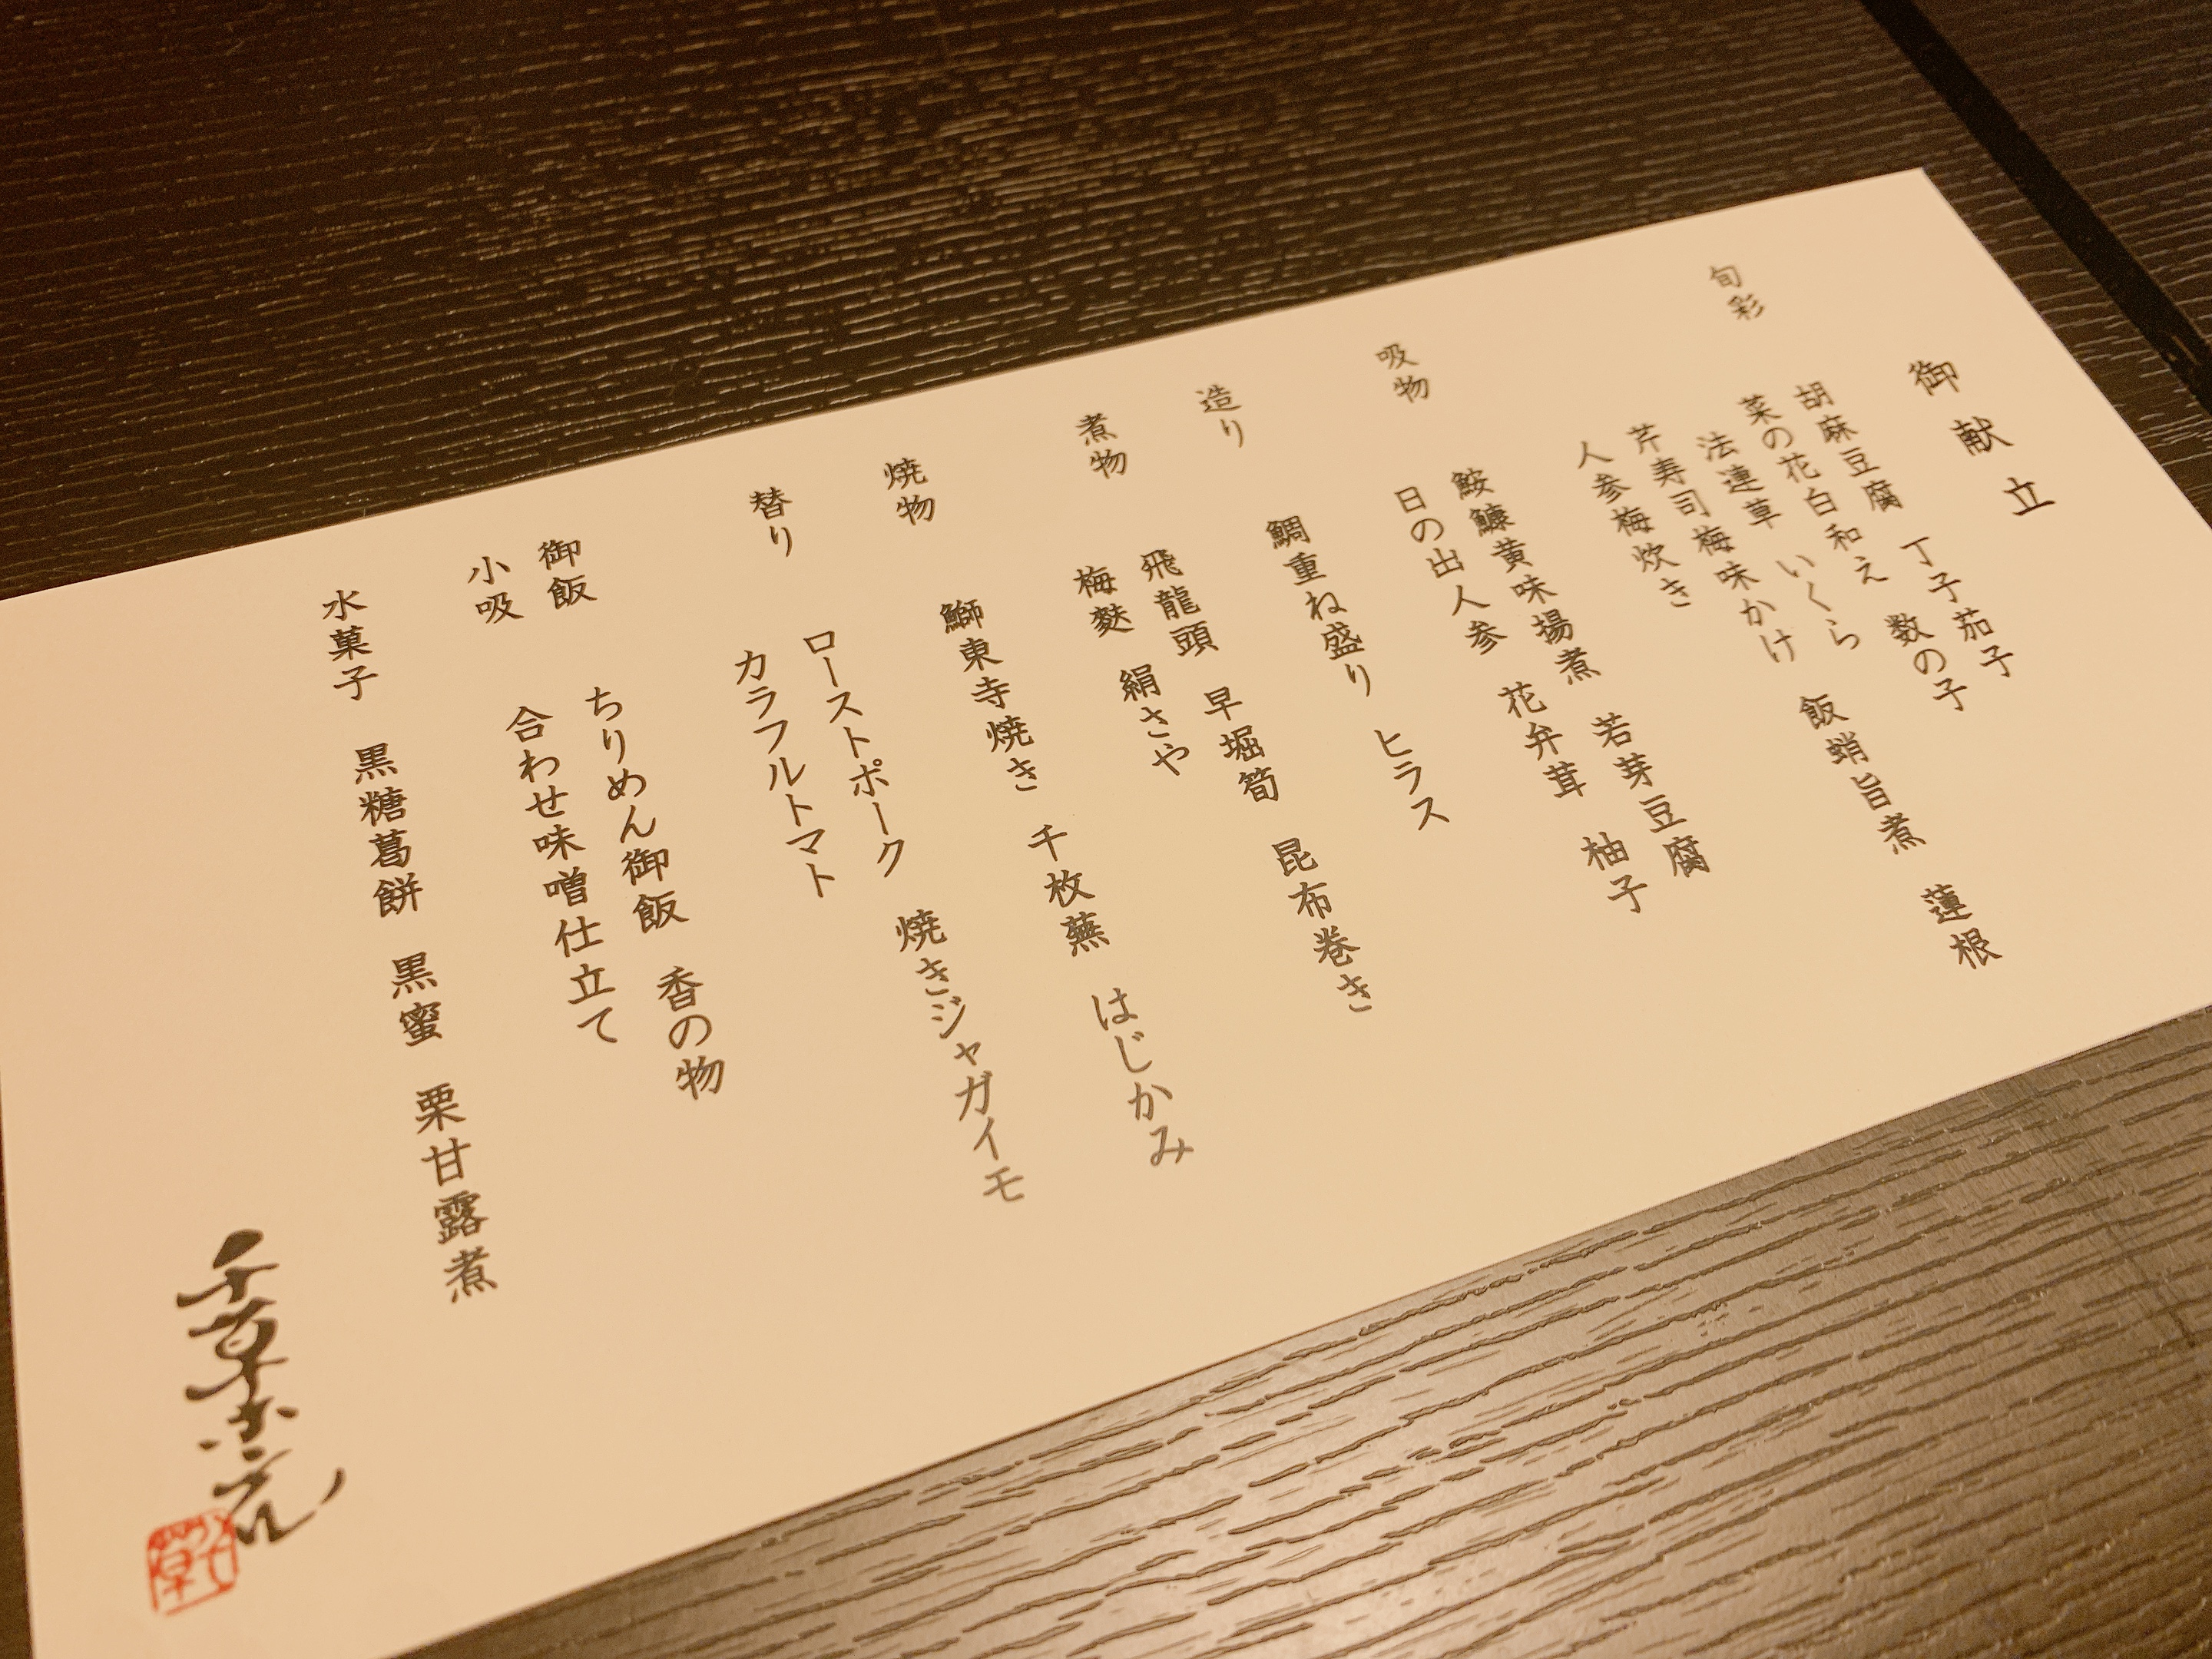 御献立
旬彩
胡麻豆腐　丁子茄子
菜の花白和え　数の子
法連草　いくら
芹寿司梅味かけ　飯蛸旨煮　蓮根
人参梅炊き
吸物
鮟鱇黄味揚煮　若芽豆腐
日の出人参　花弁茸　柚子
造り
鯛重ね盛り　ヒラス
煮物
飛龍頭　早堀筍　昆布巻き
梅麩　絹さや
焼物
鰤東寺焼き　千枚蕪　はじかみ
替り
ローストポーク　焼きジャガイモ
カラフルトマト
御飯　ちりめん御飯　香の物
小吸　合わせ味噌仕立て
水菓子　黒糖葛餅　黒蜜　栗甘露煮
千草ホテル